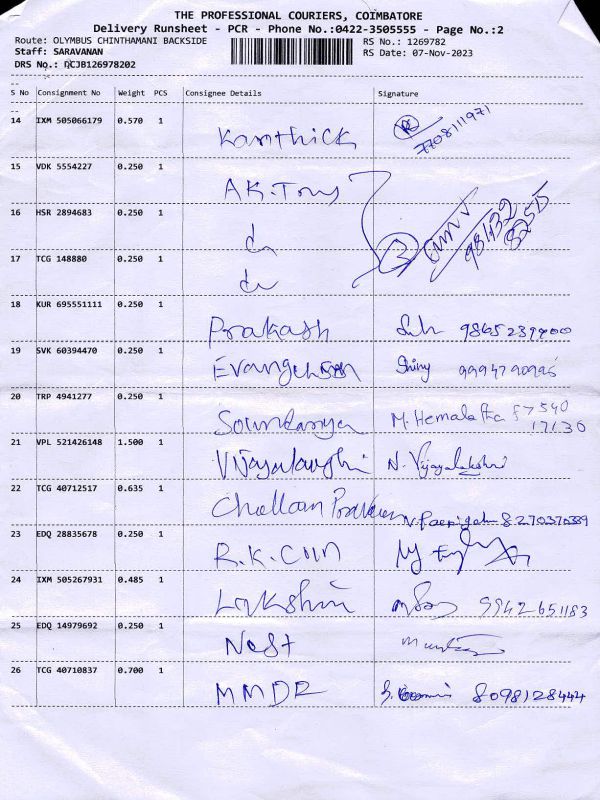 THE PROFESSIONAL COURIERS, COIMBATORE
Delivery Runsheet - PCR - Phone No.:0422-3505555 - Page No.:2
Route: OLYMBUS CHINTHAMANI BACKSIDE RS No.: 1269782
Staff: SARAVANAN RS Date: 07-Nov-2023
DRS No.: DCJB126978202
S No Consignment No Weight PCS Consignee Details Signature
14 IXM 505066179 0.570 1 Karthick 7708111971
15 VDK 5554227 0.250 1 AK.Tony
16 HSR 2894683 0.250 1 do
17 TCG 148880 0.250 1 do
18 KUR 695551111 0.250 1 Prakash
19 SVK 60394470 0.250 1 Shiny
20 TRP 4941277 0.250 1 Soundarya M. Hemalatha
21 VPL 521426148 1.500 1 N. Vijayalakshmi
22 TCG 40712517 0.635 1
23 EDQ 28835678 0.250 1 R.K.
24 IXM 505267931 0.485 1 Lakshmi 9942651183
25 EDQ 14979692 0.250 1 Nest
26 TCG 40710837 0.700 1 MMDR 8098128444